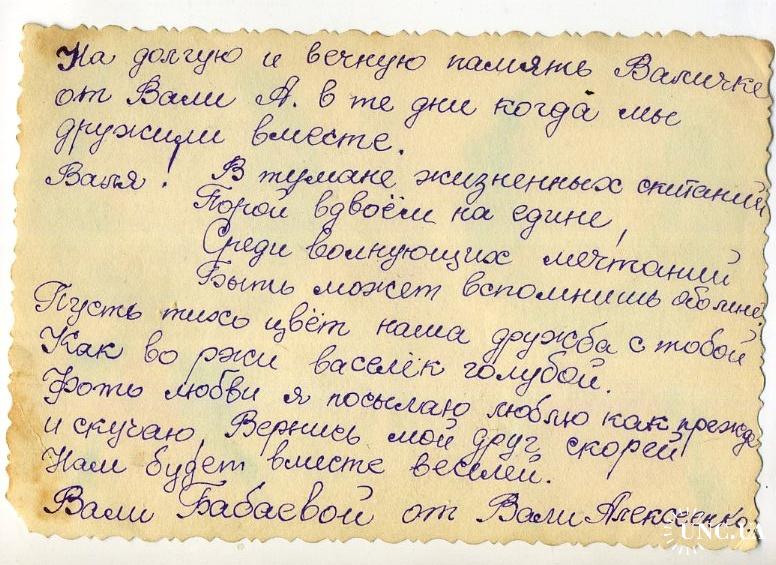 На долгую и вечную память Валичке
от Вали А. в те дни когда мы
дружили вместе.
Валя! В тумане жизненных скитаний
Порой вдвоём на едине,
Среди волнующих мечтаний
Быть может вспомнишь обо мне.
Пусть тихо цвет наша дружба с тобой
Как во ржи васелёк голубой.
Фото любви я посылаю люблю как прежде
и скучаю, Вернись мой друг скорей
Нам будет вместе веселей.
Вали Бабаевой от Вали Алексеенко.
UNC.UA